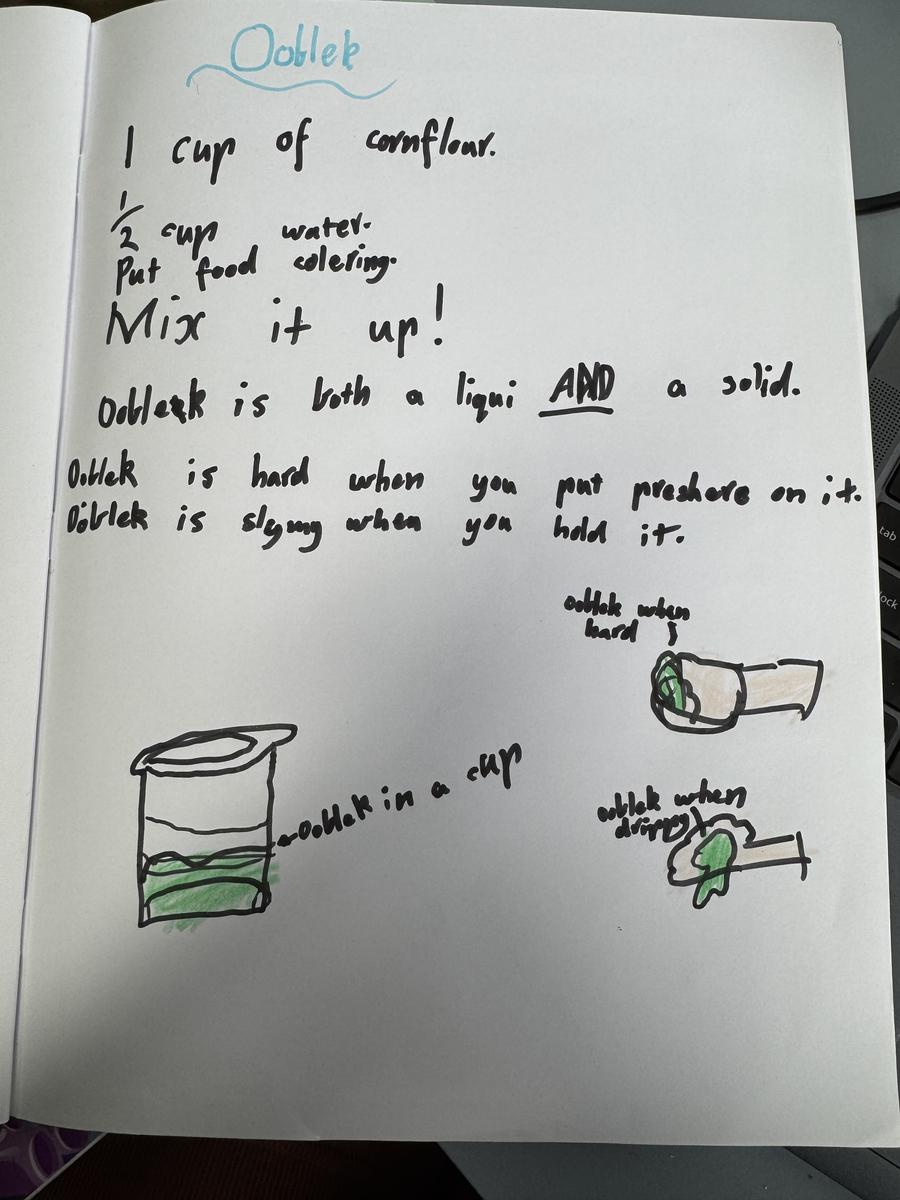 Ooblek
1 cup of cornflour.
1/2 cup water.
Put food colering.
Mix it up!
Ooblek is both a liqui AND a solid.
Ooblek is hard when you put preshere on it.
Ooblek is slymy when you hold it.
ooblek when
hard
Ooblek in a cup
ooblek when
drippy
tab
lock